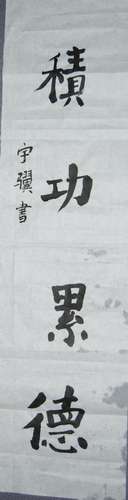 積功累德
宇驥書